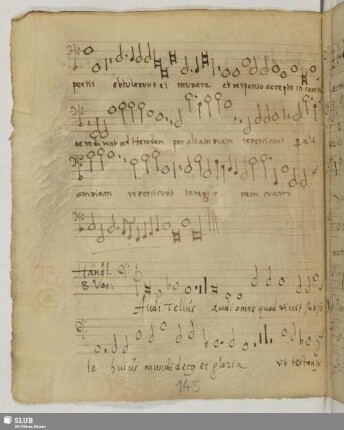 pertis obtulerunt ei munera et responso accepto in somnis
ne redirent ad Herodem per aliam viam reversi sunt p alia
am viam reversi sunt in regio nem suam
Händl.
8 Voc:
Audi Tellus audi omne quod vivit sub so
le huius mundi decg et gloria ut testantr
145
SLUB
Wir führen Wissen.